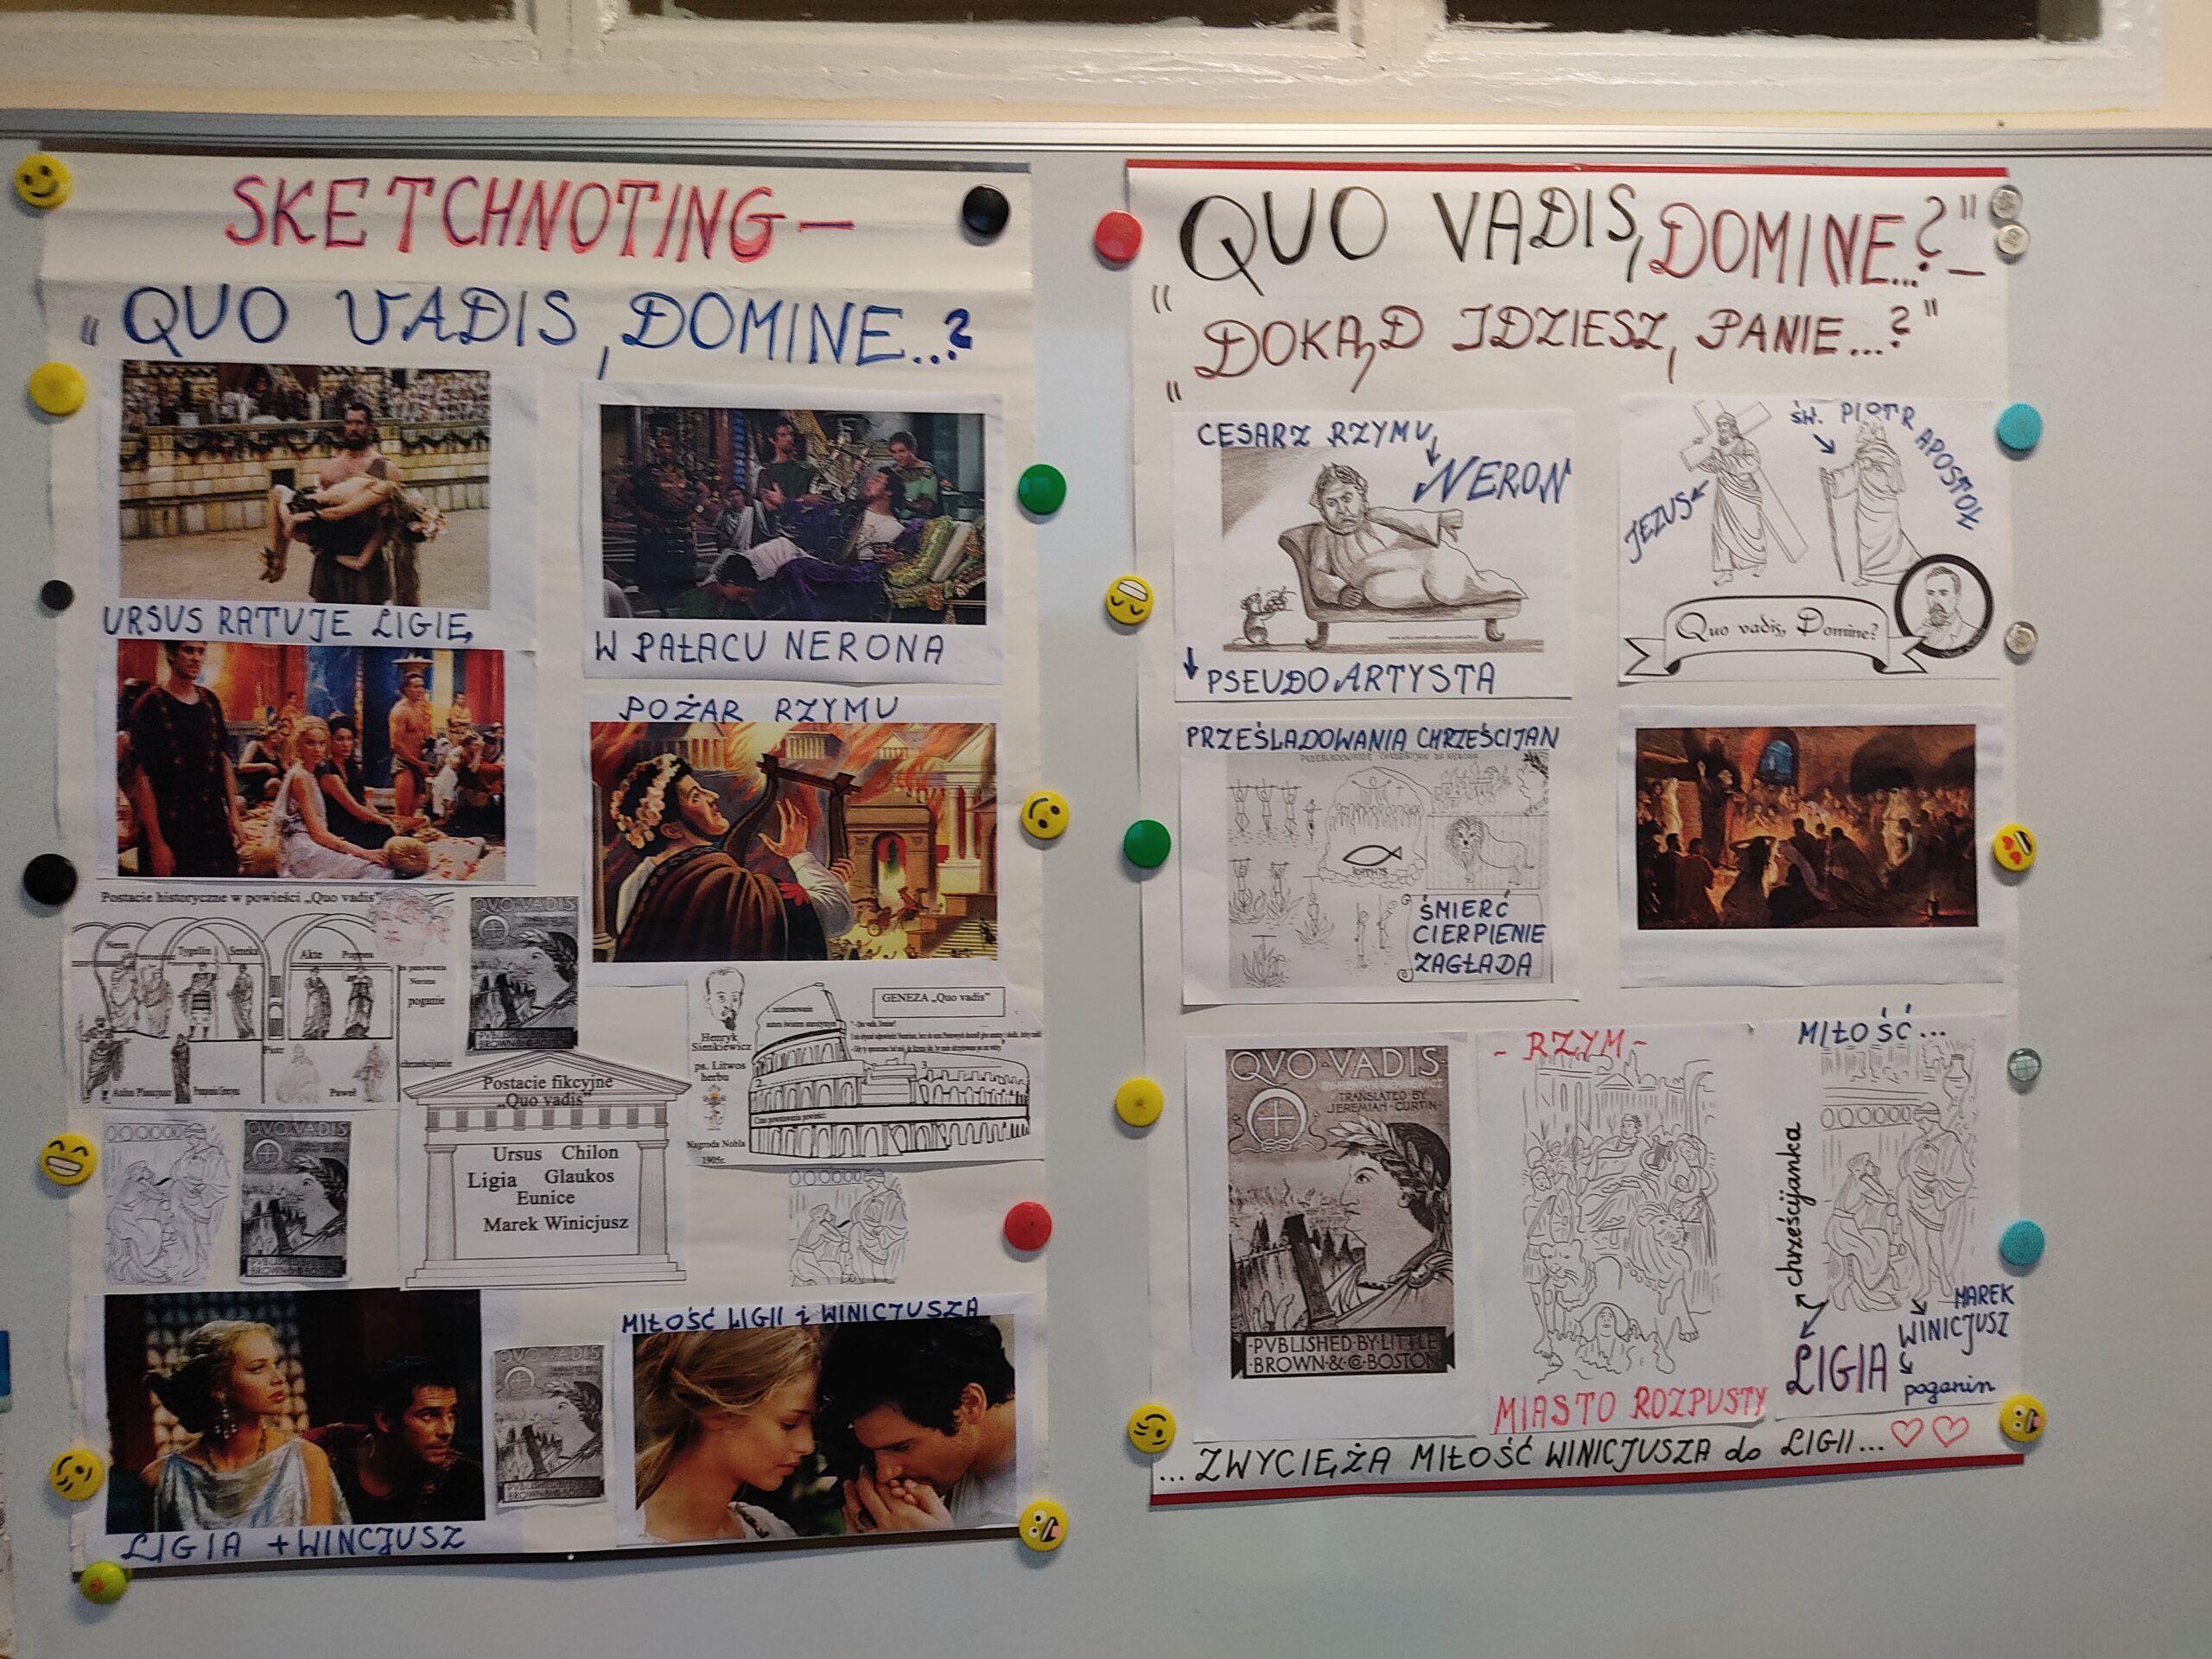 SKETCHNOTING –
„QUO VADIS, DOMINE...?
URSUS RATUJE LIGIĘ
W PAŁACU NERONA
POŻAR RZYMU
Postacie historyczne w powieści „Quo vadis”
Neron
Tygellin
Seneka
Akte
Poppea
Nerona
poganie
Piotr
Paweł
QVO VADIS
Postacie fikcyjne
„Quo vadis”
Ursus Chilon
Ligia Glaukos
Eunice
Marek Winicjusz
Henryk
Sienkiewicz
ps. Litwos
herbu
Nagroda Nobla
1905r.
GENEZA „Quo vadis”
QVO VADIS
LIGIA + WINCJUSZ
QVO VADIS
MIŁOŚĆ LIGII i WINICJUSZA
QUO VADIS, DOMINE...?” –
„DOKĄD IDZIESZ, PANIE...?”
CESARZ RZYMU
NERON
PSEUDOARTYSTA
ŚW. PIOTR APOSTOŁ
JEZUS
Quo vadis, Domine?
PRZEŚLADOWANIA CHRZEŚCIJAN
ŚMIERĆ
CIERPIENIE
ZAGŁADA
QVO·VADIS
BY·HENRYK·SIENKIEWICZ
TRANSLATED·BY
JEREMIAH·CURTIN
·PVBLISHED·BY·LITTLE
·BROWN·&·CO·BOSTON
- RZYM -
MIASTO ROZPUSTY
MIŁOŚĆ...
chrześcijanka
LIGIA
MAREK
WINICJUSZ
poganin
...ZWYCIĘŻA MIŁOŚĆ WINICJUSZA do LIGII...